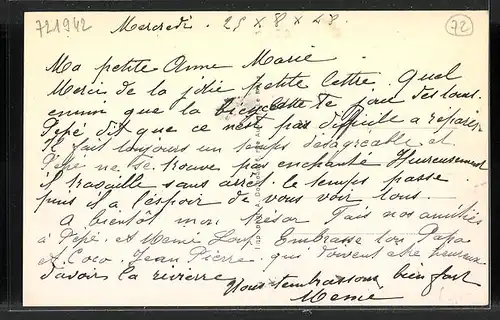 721942
72
Mercredi . 25 X 8 X 48.
Ma petite Anne Marie
Merci de la jolie petite lettre. Quel
ennui que la bicyclette te joue des tours
Pépé dit que ce n'est pas difficile a réparer
Il fait toujours un temps desagreable et
Pépé ne se trouve pas enchanté Heureusement
il travaille sans arret. le temps passe
puis il a l'espoir de vous voir tous —
a bientôt mon trésor Fais nos amitiés
à Pépé et Mémé Embrasse ton Papa
et Coco. Jean Pierre qui doivent etre heureux
d'avoir la rivierre
Nous t'embrassons bien fort
Meme